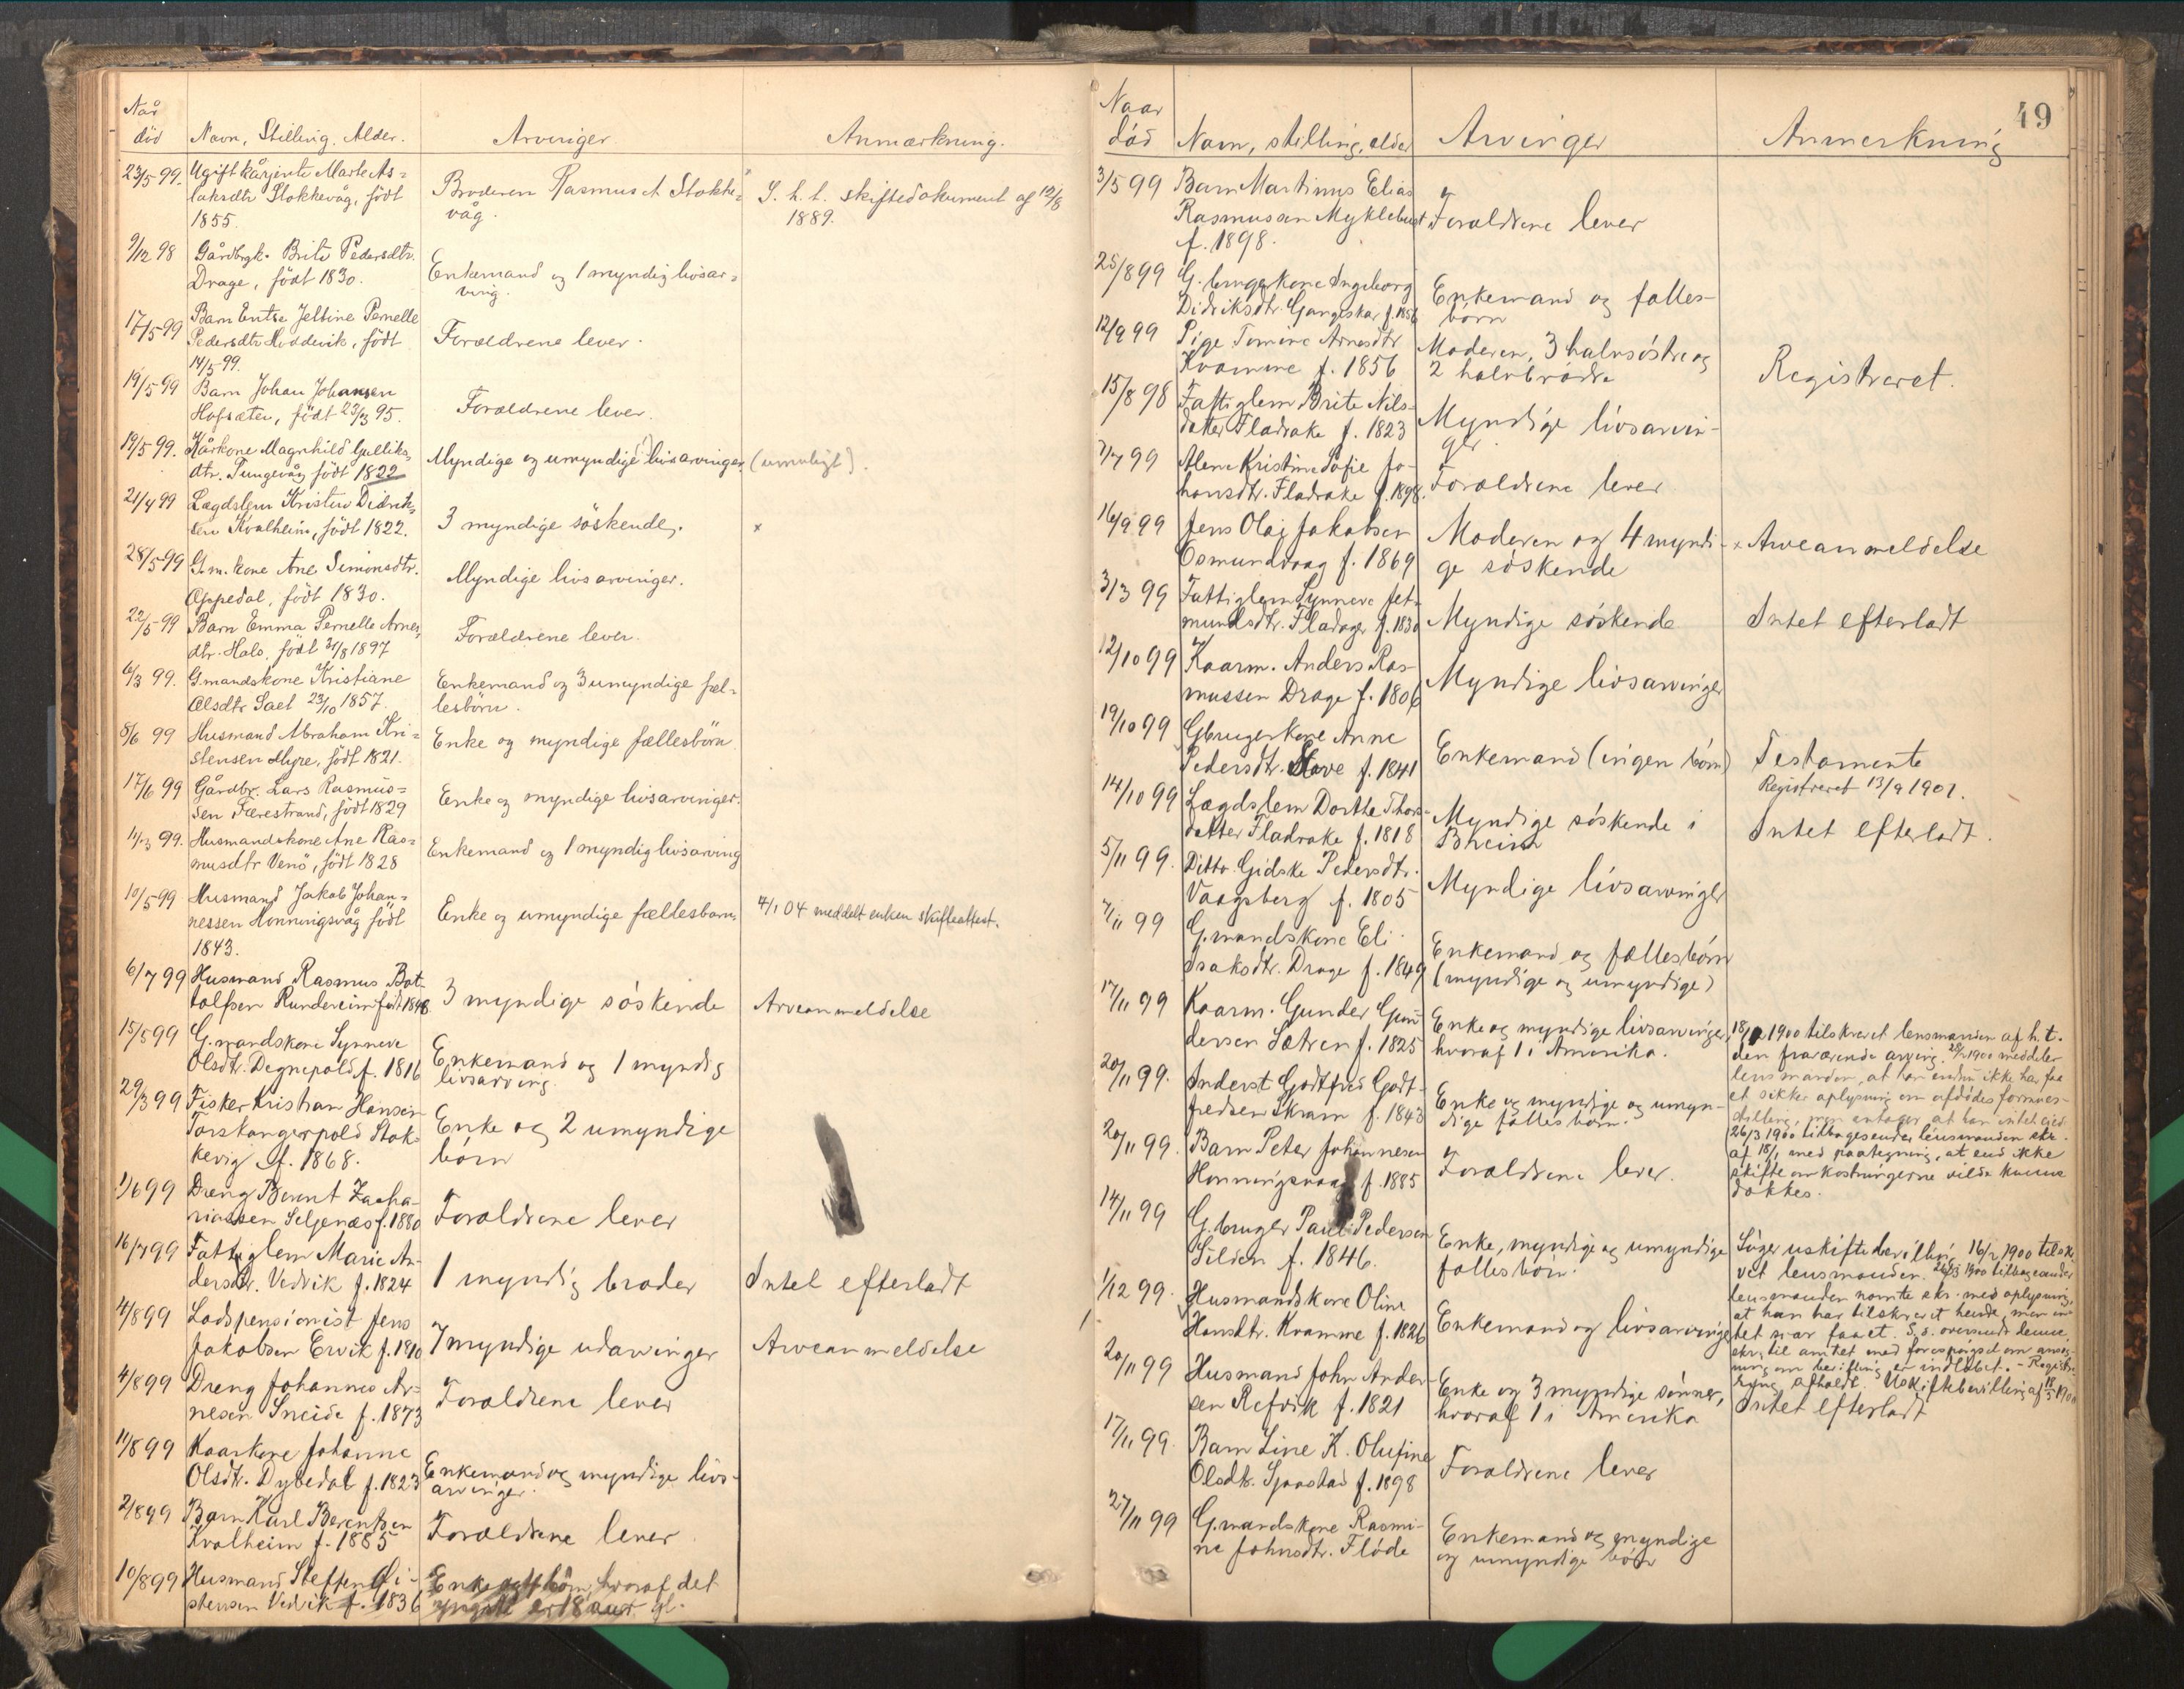 Når
död
Navn, Stilling, Alder.
Arvinger
Anmærkning.
23/5 99.
Ugift kårjente Marte As=
laksdtr Stokkevåg, födt
1855.
Broderen Rasmus A Stokke=
våg.
S. h. t. skiftedokument af 12/8
1889.
9/12 98
Gårdbrgk. Brite Pedersdtr.
Drage, födt 1830.
Enkemand og 1 myndig livsar=
ving.
17/5 99
Barn Jeltine Pernelle
Pedersdtr Hoddevik, födt
14/5 99.
Forældrene lever.
19/5 99
Barn Johan Johansen
Hofsæter, födt 23/3 95.
Forældrene lever.
19/5 99.
Kårkone Magnhild Gulliks=
dtr. Tungevåg födt 1822
Myndige og umyndige livsarvinger
(umuligt).
21/4 99
Lægdslem Kristen Didrik=
sen Kvalheim, födt 1822.
3 myndige söskende.
x
28/5 99
G.m. kone Ane Simonsdtr.
Oppedal, födt 1830.
Myndige livsarvinger.
22/5 99
Barn Emma Pernelle Arnes
dtr. Hals, födt 31/8 1897
Forældrene lever.
6/3 99.
G.mandskone Kristiane
Olsdtr Sael 23/10 1857.
Enkemand og 3 umyndige fæl=
lesbörn.
8/6 99
Husmand Abraham Kri=
stensen Myre, födt 1821.
Enke og myndige fællesbörn
17/6 99
Gårdbr. Lars Rasmus=
sen Færestrand, födt 1829
Enke og myndige livsarvinger.
11/3 99.
Husmandskone Ane Ras=
musdtr Venö, födt 1828
Enkemand og 1 myndig livsarving
10/5 99
Husmand Jakob Johan=
nessen Honningsvåg födt
1843.
Enke og umyndige fællesbarn.
4/1 04 meddelt enken skifteattest.
6/7 99
Husmand Rasmus Bot
tolfsen Rundereim födt 1848
3 myndige söskende
Arveanmeldelse
15/5 99
G.mandskone Synneve
Olsdtr. Degnepold f. 1816
Enkemand og 1 myndig
livsarving.
29/3 99
Fisker Kristian Hansen
Torskangerpold Stok=
kevig f. 1868.
Enke og 2 umyndige
börn
1/6 99
Dreng Bernt Zacha-
riassen Seljenæs f. 1880
Forældrene lever
16/7 99
Fattiglem Marie An-
dersdtr. Vedvik f. 1824
1 myndig broder
Intet efterladt
4/8 99
Lodspensionist Jens
Jakobsen Ervik f. 1810
7 myndige udarvinger
Arveanmeldelse
4/8 99
Dreng Johannes Ar=
nesen Sneide f. 1873
Forældrene lever
11/8 99
Kaarkone Johanne
Olsdtr. Dybedal f. 1823
Enkemand og myndige livs-
arvinger.
2/8 99
Barn Karl Berentsen
Kvalheim f. 1885
Forældrene lever
10/8 99
Husmand Steffen
stensen Vedvik f. 1836
Enke og 4 börn, hvoraf det
yngste er 18 aar gl.
49
Naar
död
Navn, stilling, alder
Arvinger
Anmerkning
3/5 99
Barn Martinus Elias
Rasmussen Myklebust
f. 1898.
Forældrene lever
25/8 99
G. brugerkone Ingeborg
Didriksdtr. Gangeskar f. 1856
Enkemand og fælles-
börn
12/9 99
Pige Tomine Arnesdtr
Kvamme f. 1856
Moderen, 3 halvsöstre og
2 halvbrödre
Registreret.
15/8 98
Fattiglem Brite Nils-
datter Fladrake f. 1823
Myndige livsarvin-
ger
7/7 99
Alene Kristine Sofie Jo-
hansdtr. Fladrake f. 1898.
Forældrene lever
16/9 99
Jens Olaj Jakobsen
Osmundvaag f. 1869
Moderen og 4 myndi-
ge söskende
x Arveanmeldelse
3/3 99
Fattiglem Synneve Jet-
mundsdtr. Fladager f. 1830
Myndige söskende
Intet efterladt
12/10 99
Kaarm. Anders Ras-
mussen Drage f. 1806
Myndige livsarvinger
19/10 99
Gbrugerkone Anne
Pedersdtr. Stave f. 1841
Enkemand (ingen börn)
Testamente
Registreret 13/9 1901.
14/10 99
Lægdslem Dorthe Thors-
datter Fladrake f. 1818
Myndige söskende i
Bheim
Intet efterladt.
5/11 99.
Ditto Gidske Pedersdtr.
Vaagsberg f. 1805
Myndige livsarvinger
7/11 99
G.mandskone Eli
Isaksdtr. Drage f. 1849
Enkemand og fællesbörn
(myndige og umyndige)
17/11 99
Kaarm. Gunder Gun
dersen Sætren f. 1825
Enke og myndige livsarvinger,
hvoraf 1 i Amerika.
18/1 1900 tilskrevet lensmanden af h. t.
den fraværende arving. 28/1 1900 meddeler
lensmanden, at han endnu ikke har faa
et sikker oplysning om afdödes formues-
stilling, men antager at han intet eied.
26/3 1900 tilbagesender lensmanden skr.
af 18/1 med paategning, at end ikke
skifteomkostningerne vilde kunne
dækkes.
20/11 99.
Inderst Godtfred Godt-
fredsen Skram f. 1843
Enke og myndige og umyn-
dige fællesbörn.
20/11 99.
Barn Peter Johannesen
Honningsvaag f. 1885
Forældrene lever.
14/11 99
G.bruger Paul Pedersen
Silden f. 1846.
Enke, myndige og umyndige
fællesbörn.
Söger uskiftebevilling 16/2 1900 tilskr
vet lensmanden. 26/3 1900 tilbagesender
lensmanden nævnte skr. med oplysning,
at han har tilskrevet hende, men in
tet svar faaet. S. d. oversendt denne
skr. til amtet med forespörgsel om ansög-
ning om bevilling er indlöbet. - Registre-
ring afholdt. Uskiftebevilling af 18/5 1900
1/12 99.
Husmandskone Oline
Hansdtr. Kvamme f. 1826
Enkemand og livsarvinger
20/11 99
Husmand John Ander-
sen Refvik f. 1821
Enke og 3 myndige sönner,
hvoraf 1 i Amerika
Intet efterladt
17/11 99.
Barn Line K. Olufine
Olsdtr. Sjaastad f. 1898
Forældrene lever
27/11 99
G.mandskone Rasmi-
ne Johnsdtr. Flöde
Enkemand og myndige
og umyndige börn